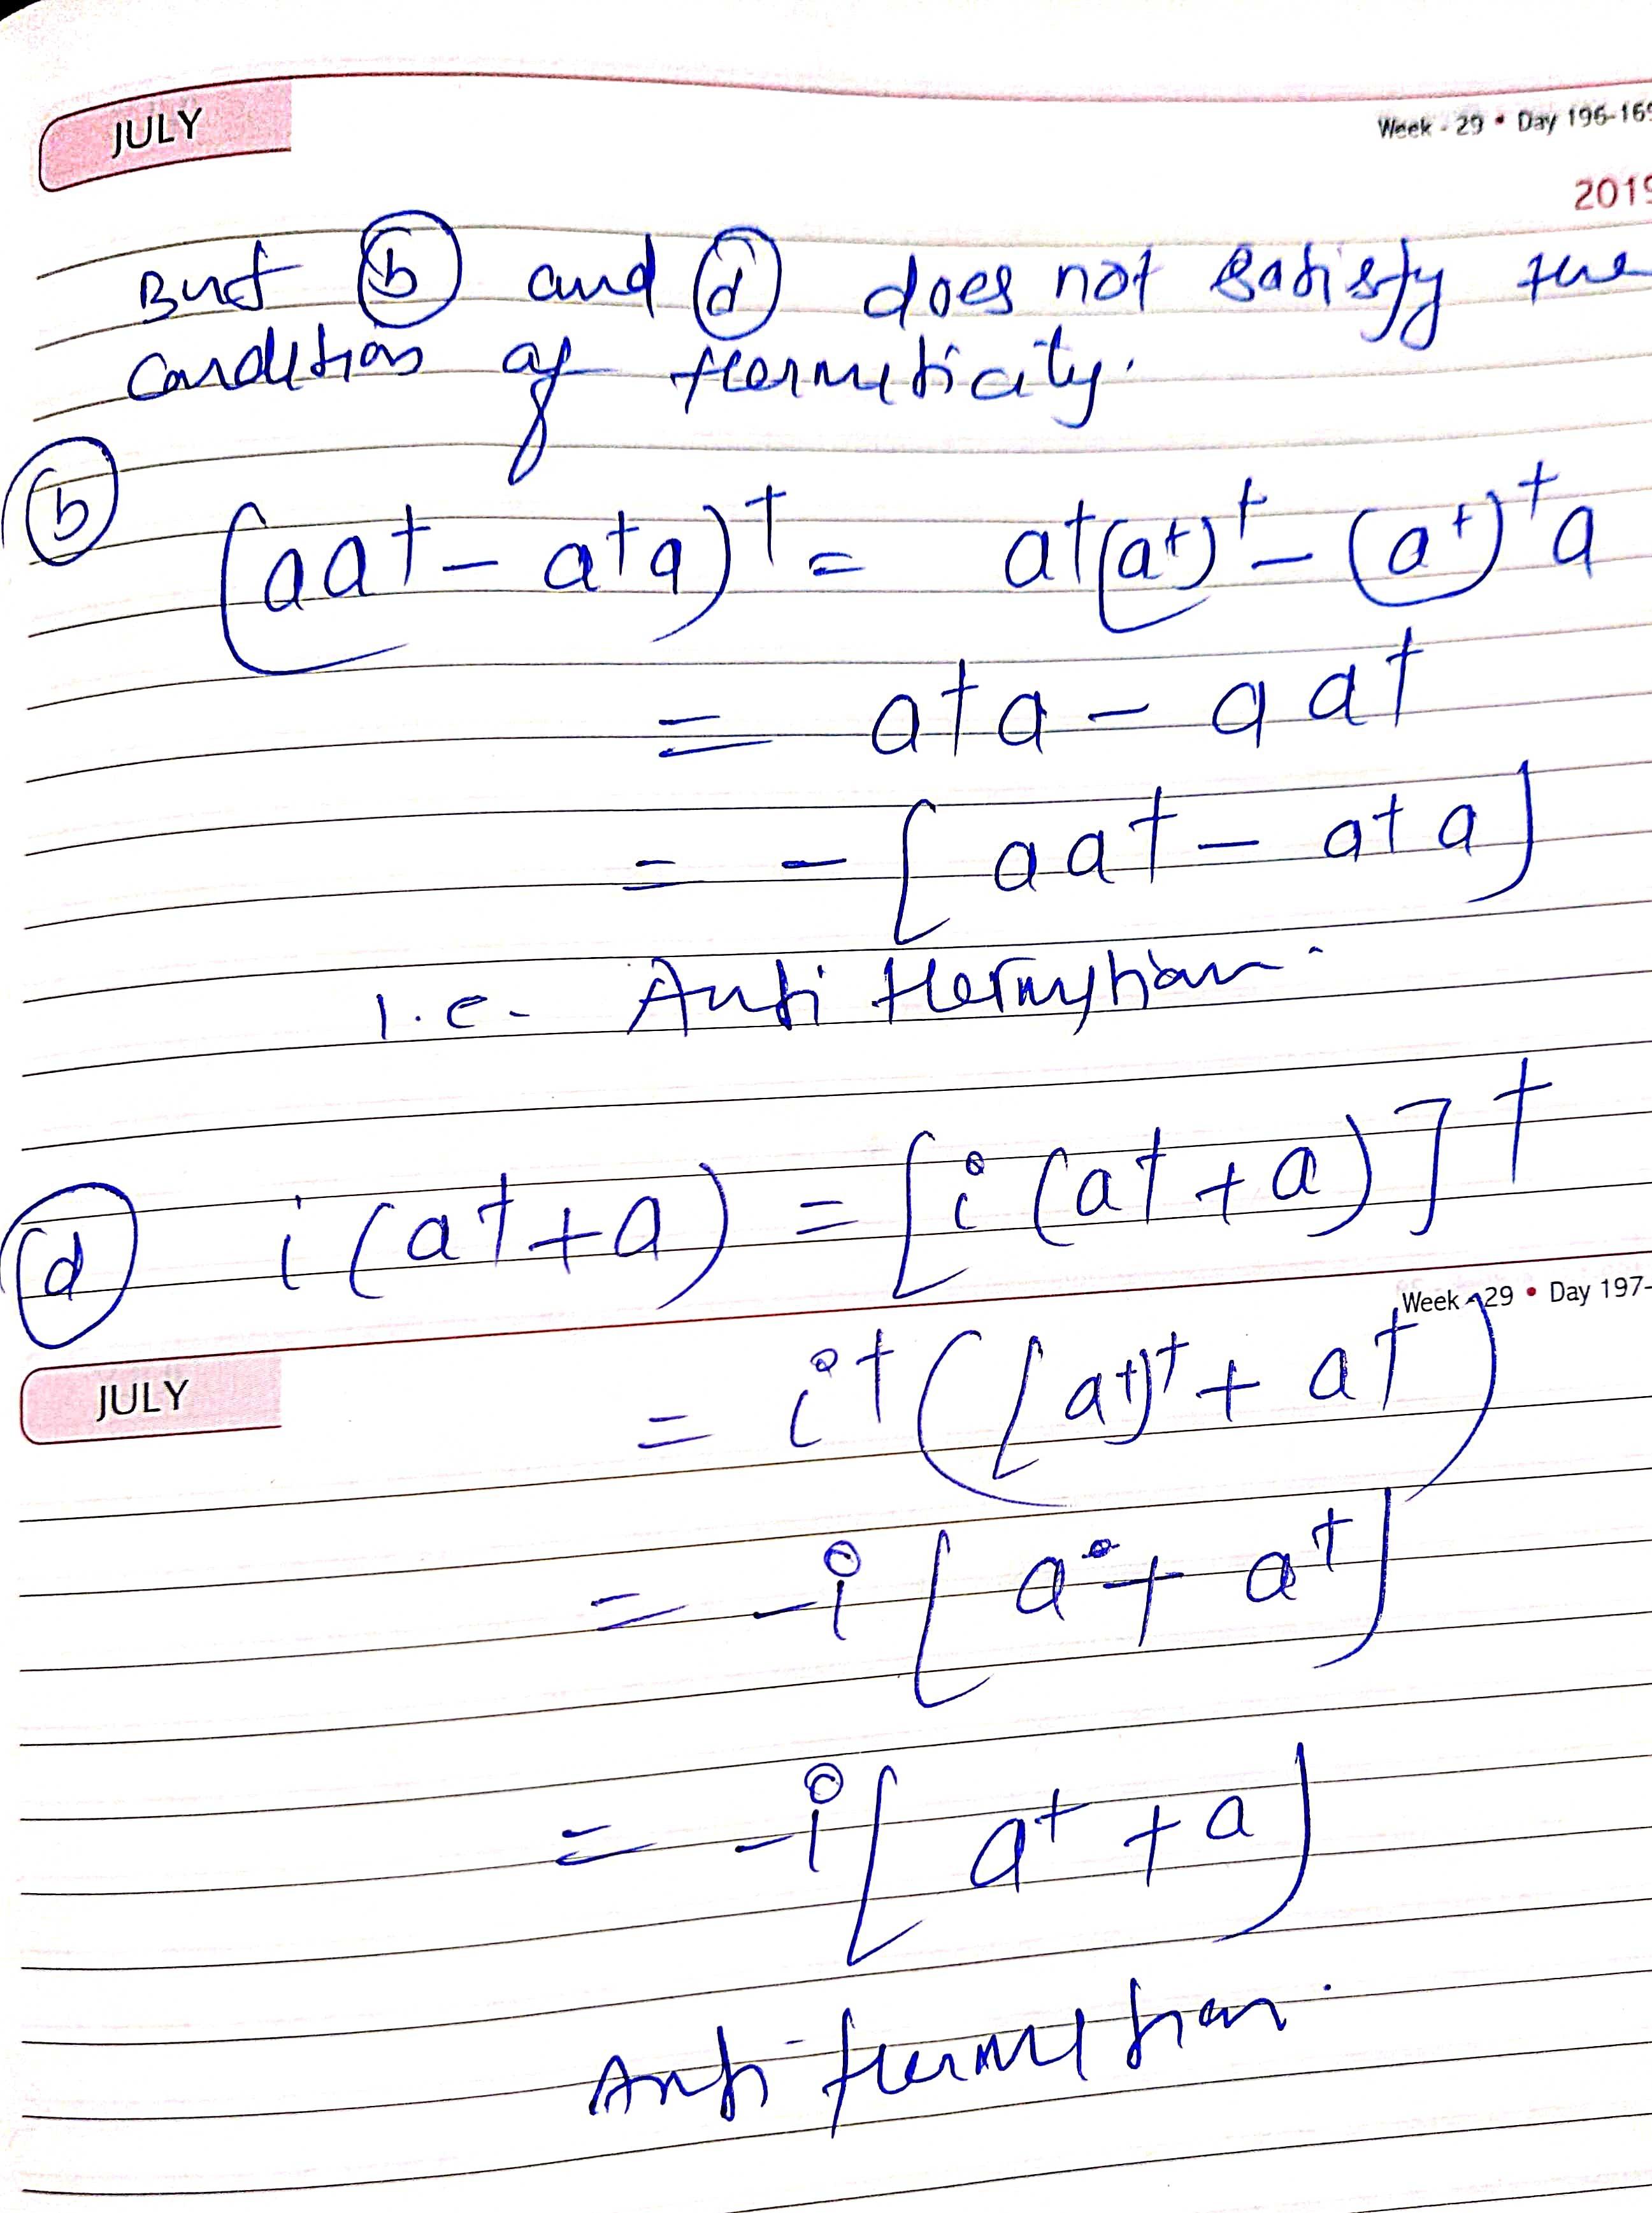 JULY
Week - 29 • Day 196-169
2019
But (b) and (d) does not satisfy the
condition of Hermiticity.
(b) (aa† - a†a)† = a†(a†)† - (a†)†a
= a†a - aa†
= - [aa† - a†a]
i.e. Anti Hermytian.
(d) i(a†+a) = [i(a†+a)]†
Week - 29 • Day 197-
JULY
= i†([a†)† + a†)
= -i[a + a†]
= -i[a† + a]
Anti-Hermetian.